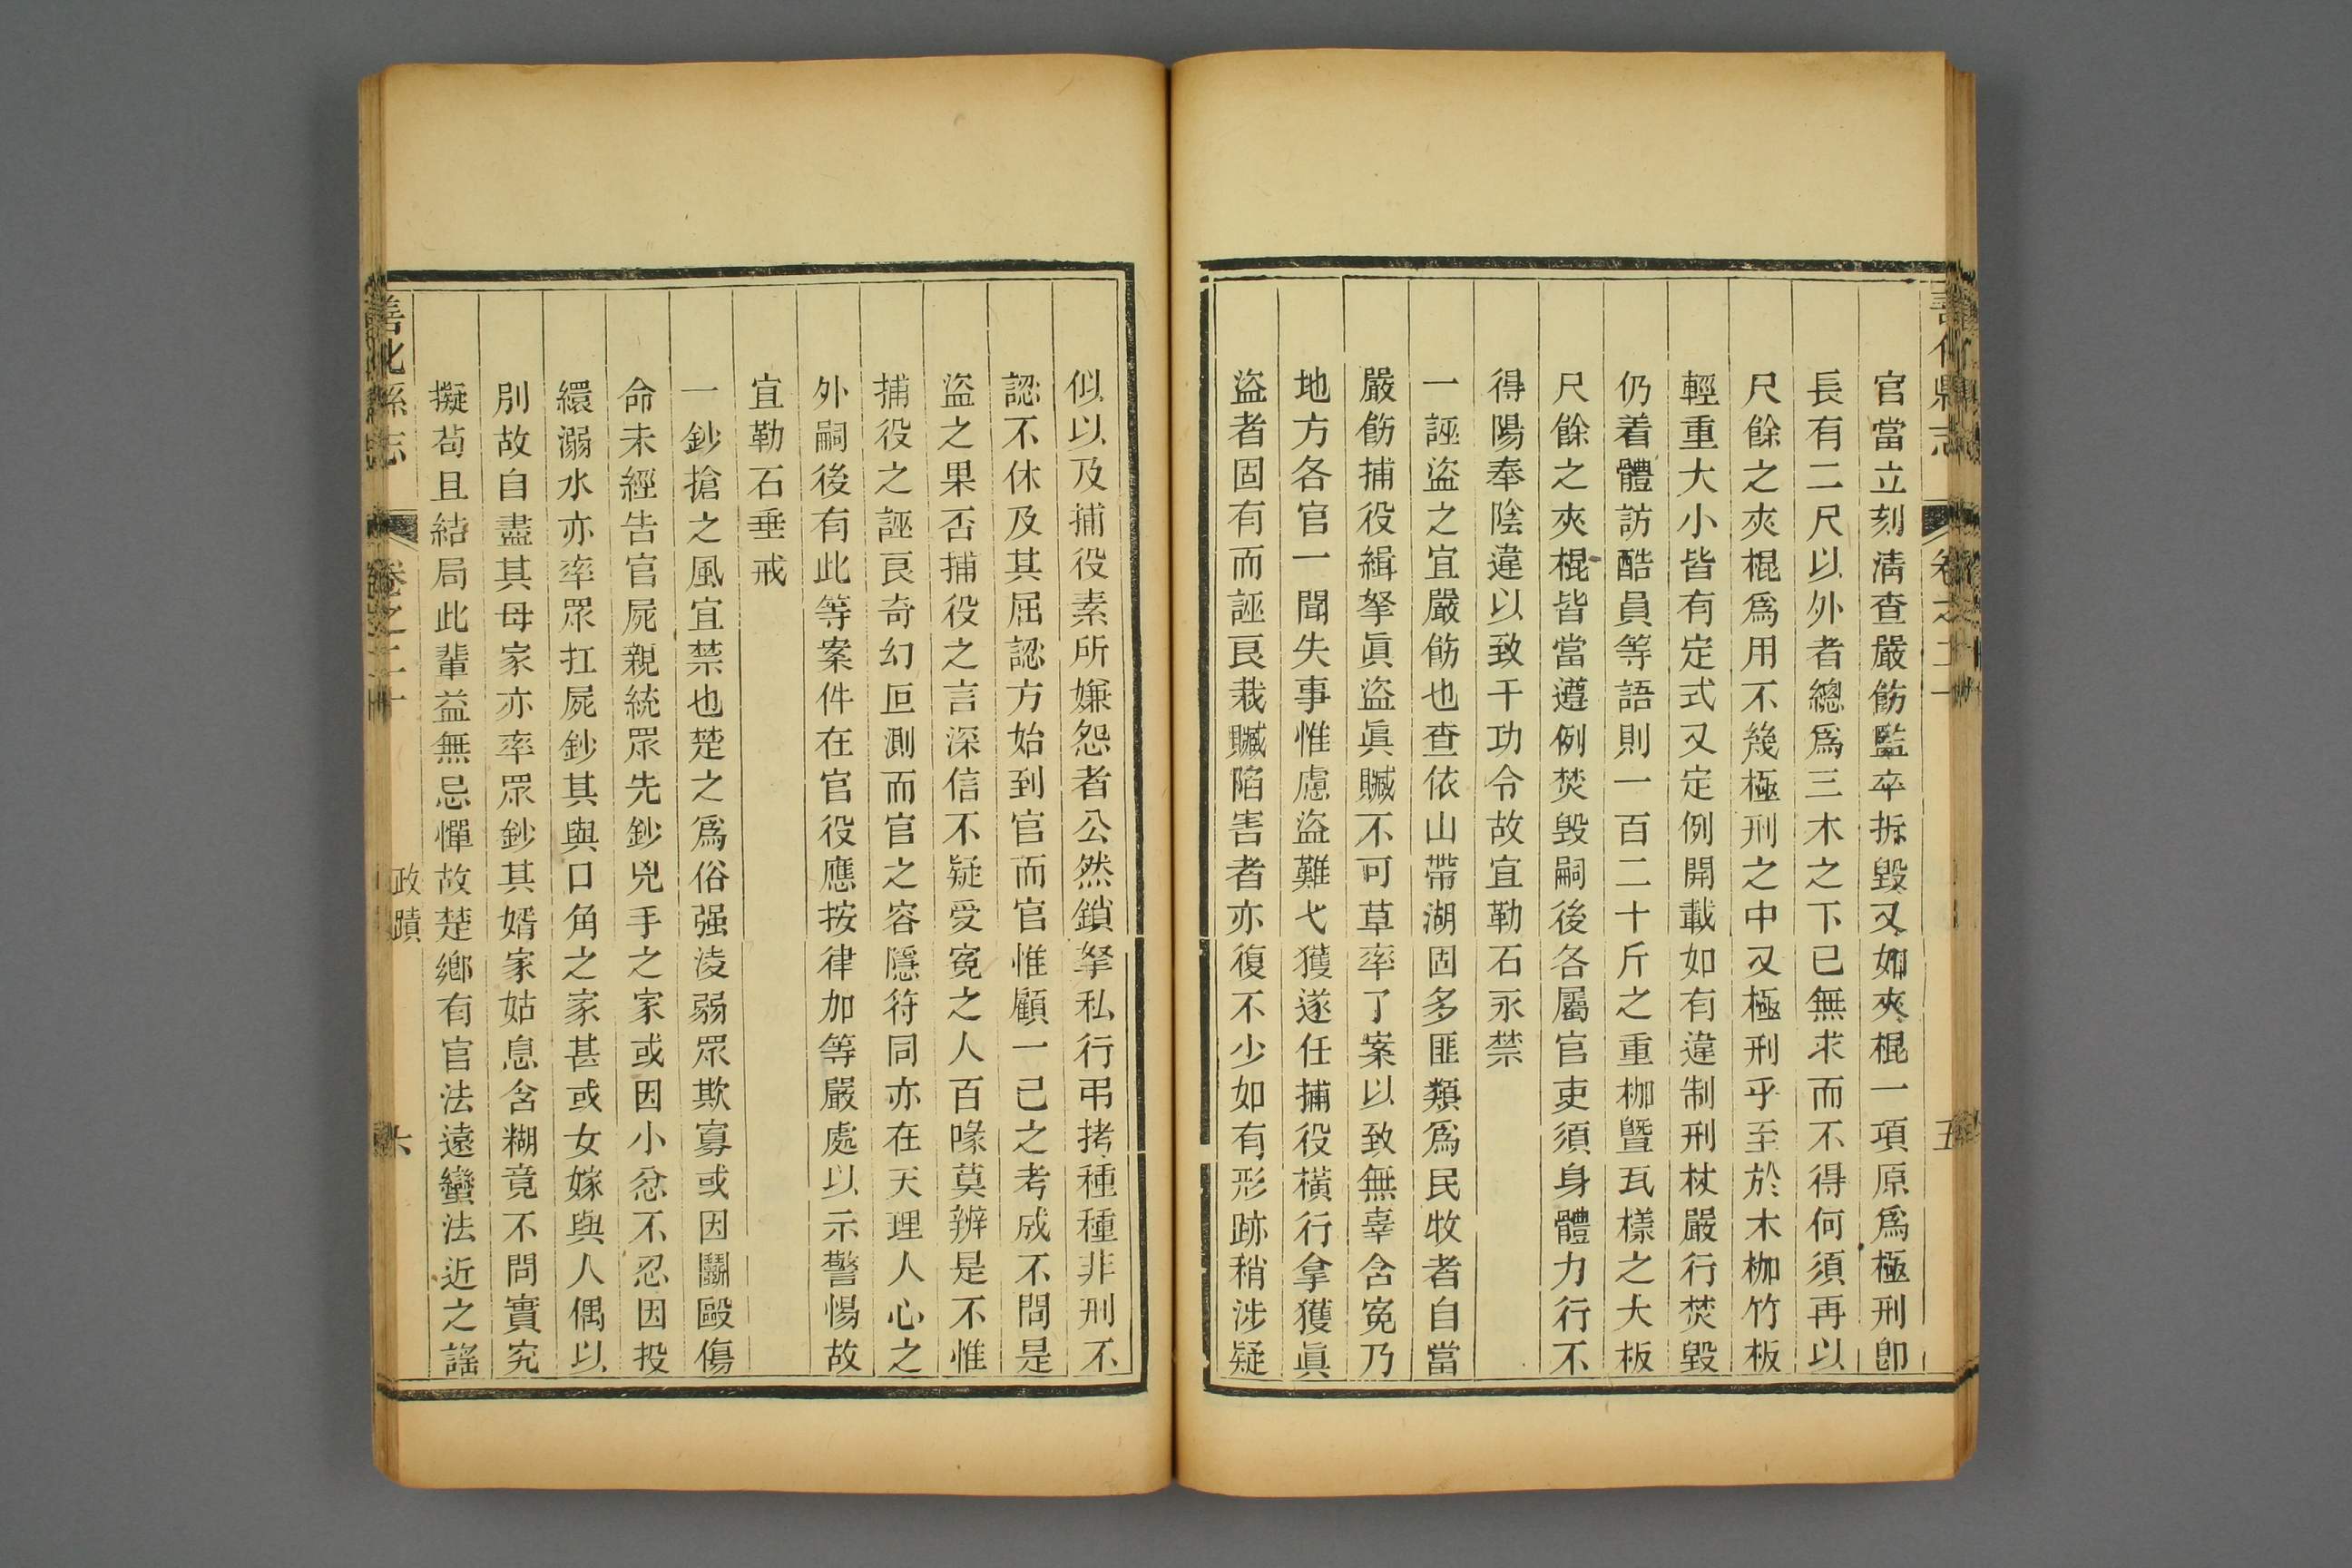 善化縣志
卷之二十
五
官當立刻清查嚴飭監卒拆毀又如夾棍一項原爲極刑卽
長有二尺以外者總爲三木之下已無求而不得何須再以
尺餘之夾棍爲用不幾極刑之中又極刑乎至於木枷竹板
輕重大小皆有定式又定例開載如有違制刑杖嚴行焚毀
仍着體訪酷員等語則一百二十斤之重枷曁瓦樣之大板
尺餘之夾棍皆當遵例焚毀嗣後各屬官吏須身體力行不
得陽奉陰違以致干功令故宜勒石永禁
一誣盜之宜嚴飭也查依山帶湖固多匪類爲民牧者自當
嚴飭捕役緝拏眞盜眞贓不可草率了案以致無辜含寃乃
地方各官一聞失事惟慮盜難弋獲遂任捕役橫行拿獲眞
盜者固有而誣良栽贓陷害者亦復不少如有形跡稍涉疑
似以及捕役素所嫌怨者公然鎖拏私行弔拷種種非刑不
認不休及其屈認方始到官而官惟顧一己之考成不問是
盜之果否捕役之言深信不疑受寃之人百喙莫辨是不惟
捕役之誣良奇幻叵測而官之容隱符同亦在天理人心之
外嗣後有此等案件在官役應按律加等嚴處以示警惕故
宜勒石垂戒
一鈔搶之風宜禁也楚之爲俗强淩弱眾欺寡或因鬭毆傷
命未經告官屍親統眾先鈔兇手之家或因小忿不忍因投
繯溺水亦率眾扛屍鈔其與口角之家甚或女嫁與人偶以
別故自盡其母家亦率眾鈔其婿家姑息含糊竟不問實究
擬苟且結局此輩益無忌憚故楚鄉有官法遠蠻法近之謠
善化縣志
卷之二十
政蹟
六